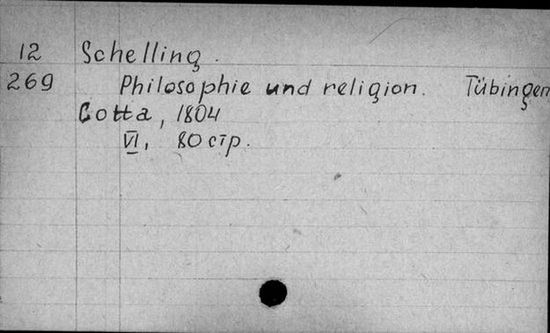 12 Schelling.
269 Philosophie und religion. Tübingen
Cotta, 1804
VI, 80 стр.